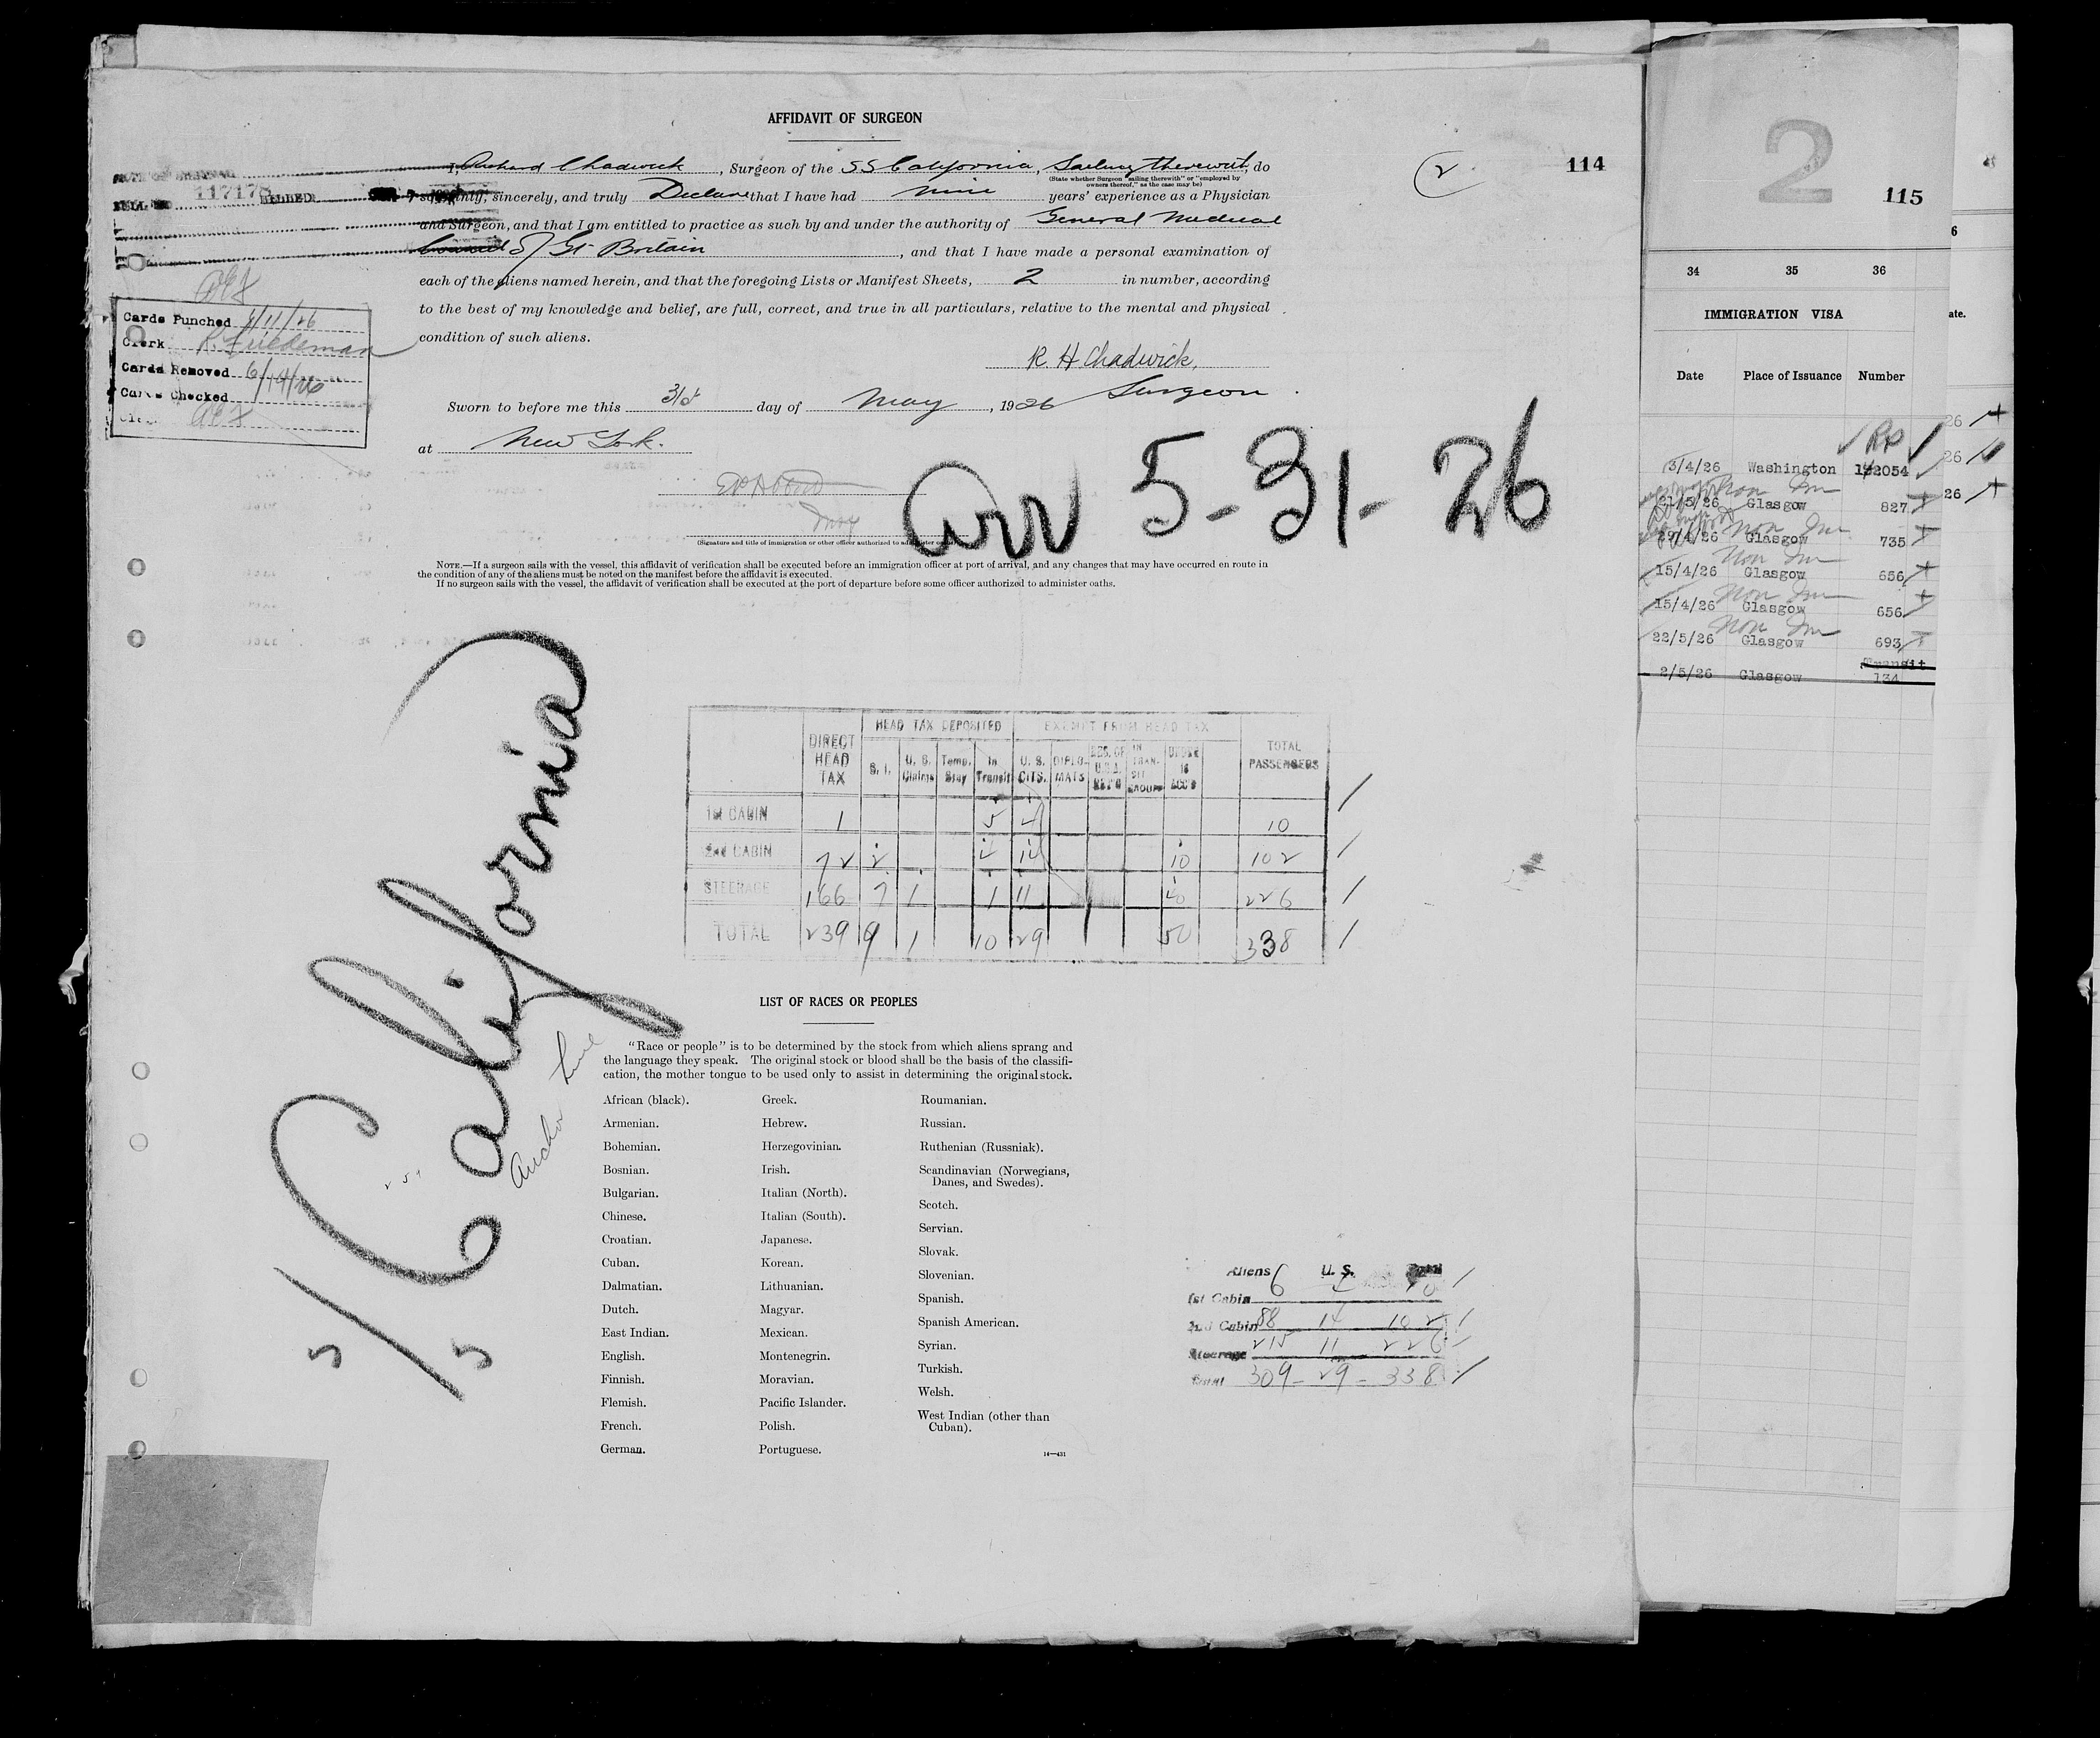 AFFIDAVIT OF SURGEON
I, Richard Chadwick, Surgeon of the SS California, Sailing therewith, do
(State whether Surgeon "sailing therewith" or "employed by
owners thereof," as the case may be)
solemnly, sincerely, and truly Declare that I have had nine years' experience as a Physician
and Surgeon, and that I am entitled to practice as such by and under the authority of General Medical
Council of Gt Britain, and that I have made a personal examination of
each of the aliens named herein, and that the foregoing Lists or Manifest Sheets, 2 in number, according
to the best of my knowledge and belief, are full, correct, and true in all particulars, relative to the mental and physical
condition of such aliens.
R. H Chadwick,
Surgeon.
Sworn to before me this 31st day of May, 1926
at New York.
(Signature and title of immigration or other officer authorized to administer
NOTE.—If a surgeon sails with the vessel, this affidavit of verification shall be executed before an immigration officer at port of arrival, and any changes that may have occurred en route in
the condition of any of the aliens must be noted on the manifest before the affidavit is executed.
If no surgeon sails with the vessel, the affidavit of verification shall be executed at the port of departure before some officer authorized to administer oaths.
2
114
117178
Cards Punched 6/11/26
Clerk R. Friedeman
Cards Removed 6/14/26
Cards Checked
Arr 5-31-26
S/S California
Anchor Line
HEAD TAX DEPOSITED EXEMPT FROM HEAD TAX
DIRECT HEAD TAX S. I. U. S. Claims Temp. Stay In Transit U. S. CITS. DIPLOMATS UNDER 16 ACC'D TOTAL PASSENGERS
1st CABIN 1 5 4 10
2nd CABIN 72 2 4 14 10 102
STEERAGE 166 7 1 1 11 40 226
TOTAL 239 9 1 10 29 50 338
LIST OF RACES OR PEOPLES
"Race or people" is to be determined by the stock from which aliens sprang and
the language they speak. The original stock or blood shall be the basis of the classifi-
cation, the mother tongue to be used only to assist in determining the original stock.
African (black).
Armenian.
Bohemian.
Bosnian.
Bulgarian.
Chinese.
Croatian.
Cuban.
Dalmatian.
Dutch.
East Indian.
English.
Finnish.
Flemish.
French.
German.
Greek.
Hebrew.
Herzegovinian.
Irish.
Italian (North).
Italian (South).
Japanese.
Korean.
Lithuanian.
Magyar.
Mexican.
Montenegrin.
Moravian.
Pacific Islander.
Polish.
Portuguese.
Roumanian.
Russian.
Ruthenian (Russniak).
Scandinavian (Norwegians,
Danes, and Swedes).
Scotch.
Servian.
Slovak.
Slovenian.
Spanish.
Spanish American.
Syrian.
Turkish.
Welsh.
West Indian (other than
Cuban).
14—431
Aliens U. S. Total
1st Cabin 6 4 10
2nd Cabin 88 14 102
Steerage 215 11 226
Total 309 - 29 - 338
2
115
34 35 36
IMMIGRATION VISA
Date Place of Issuance Number
3/4/26 Washington 122054
21/5/26 Glasgow 827
Non Im
29/4/26 Glasgow 735
Non Im
15/4/26 Glasgow 656
Non Im
15/4/26 Glasgow 656
Non Im
22/5/26 Glasgow 693
Non Im
Transit
2/5/26 Glasgow 134
6
ate.
26
26
26